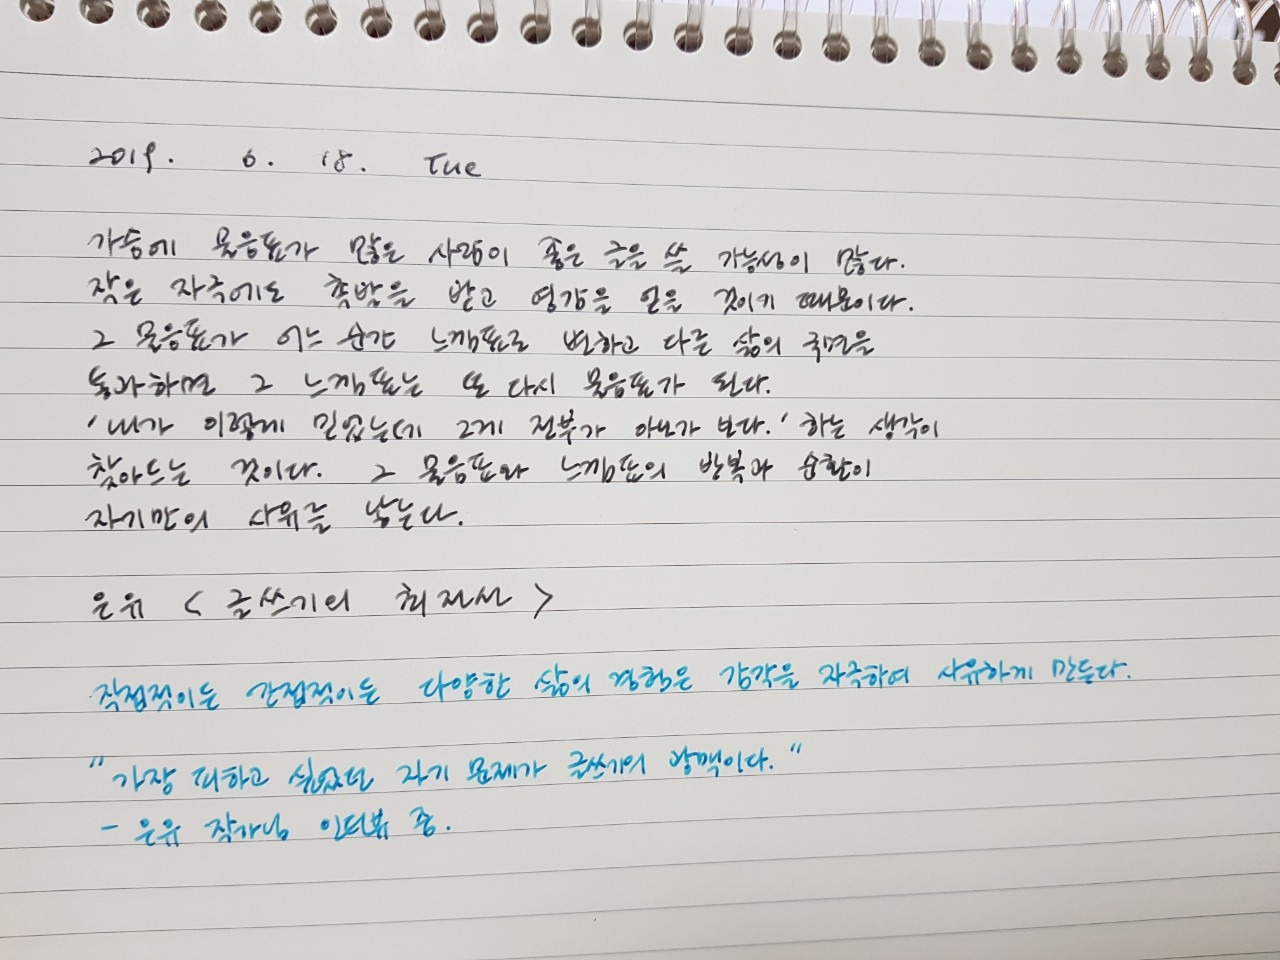 2019. 6. 18. Tue
가슴에 물음표가 많은 사람이 좋은 글을 쓸 가능성이 많다.
작은 자극에도 촉발을 받고 영감을 얻을 것이기 때문이다.
그 물음표가 어느 순간 느낌표로 변하고 다른 삶의 국면을
통과하면 그 느낌표는 또 다시 물음표가 된다.
'내가 이렇게 믿었는데 그게 전부가 아닌가 보다.' 하는 생각이
찾아드는 것이다. 그 물음표와 느낌표의 반복과 순환이
자기만의 사유를 낳는다.
은유 < 글쓰기의 최전선 >
직접적이든 간접적이든 다양한 삶의 경험은 감각을 자극하여 사유하게 만든다.
"가장 피하고 싶었던 자기 문제가 글쓰기의 광맥이다."
- 은유 작가님 인터뷰 중.